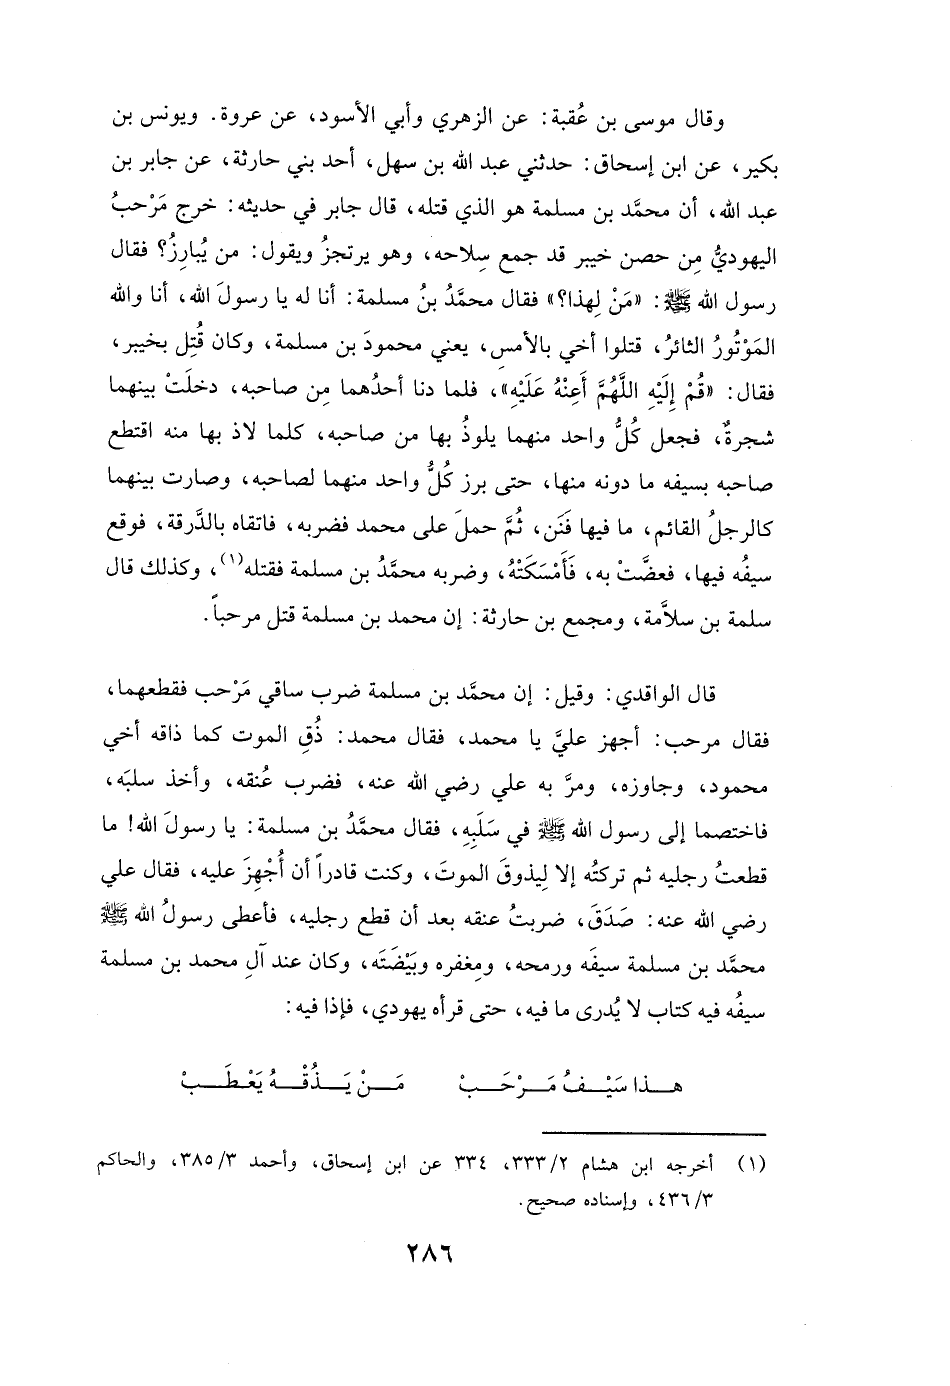 وقال موسى بن عُقبة: عن الزهري وأبي الأسود، عن عروة. ويونس بن
بكير، عن ابن إسحاق: حدثني عبد الله بن سهل، أحد بني حارثة، عن جابر بن
عبد الله، أن محمَّد بن مسلمة هو الذي قتله، قال جابر في حديثه: خرج مَرْحبُ
اليهوديُّ مِن حصن خيبر قد جمع سِلاحه، وهو يرتجزُ ويقول: من يُبارِزُ؟ فقال
رسول الله ﷺ: «مَنْ لِهذا؟» فقال محمَّدُ بنُ مسلمة: أنا له يا رسولَ الله، أنا والله
المَوْتُورُ الثائرُ، قتلوا أخي بالأمسِ، يعني محمودَ بن مسلمة، وكان قُتِل بخيبر،
فقال: «قُمْ إِلَيْهِ اللَّهُمَّ أَعِنْهُ عَلَيْهِ»، فلما دنا أحدُهما مِن صاحبه، دخلَتْ بينهما
شجرةٌ، فجعل كُلُّ واحد منهما يلوذُ بها من صاحبه، كلما لاذ بها منه اقتطع
صاحبه بسيفه ما دونه منها، حتى برز كُلُّ واحد منهما لصاحبه، وصارت بينهما
كالرجلُ القائم، ما فيها فَنَن، ثُمَّ حملَ على محمد فضربه، فاتقاه بالدَّرقة، فوقع
سيفُه فيها، فعضَّتْ به، فَأَمْسَكَتْهُ، وضربه محمَّدُ بن مسلمة فقتله(١)، وكذلك قال
سلمة بن سلاَّمة، ومجمع بن حارثة: إن محمد بن مسلمة قتل مرحباً.
قال الواقدي: وقيل: إن محمَّد بن مسلمة ضرب ساقي مَرْحب فقطعهما،
فقال مرحب: أجهز عليَّ يا محمد، فقال محمد: ذُقِ الموت كما ذاقه أخي
محمود، وجاوزه، ومرَّ به علي رضي الله عنه، فضرب عُنقه، وأخذ سلبَه،
فاختصما إلى رسول الله ﷺ في سَلَبِهِ، فقال محمَّدُ بن مسلمة: يا رسولَ الله! ما
قطعتُ رجليه ثم تركتُه إلا لِيذوقَ الموتَ، وكنت قادراً أن أُجْهِزَ عليه، فقال علي
رضي الله عنه: صَدَقَ، ضربتُ عنقه بعد أن قطع رجليه، فأعطى رسولُ الله ﷺ
محمَّد بن مسلمة سيفَه ورمحه، ومِغفره وبَيْضَتَه، وكان عند آلِ محمد بن مسلمة
سيفُه فيه كتاب لا يُدرى ما فيه، حتى قرأه يهودي، فإذا فيه:
هـذا سَيْـفُ مَـرْحَـبْ مَـنْ يَـذُقْـهُ يَعْـطَـبْ
(١) أخرجه ابن هشام ٣٣٣/٢، ٣٣٤ عن ابن إسحاق، وأحمد ٣٨٥/٣، والحاكم
٤٣٦/٣، وإسناده صحيح.
٢٨٦